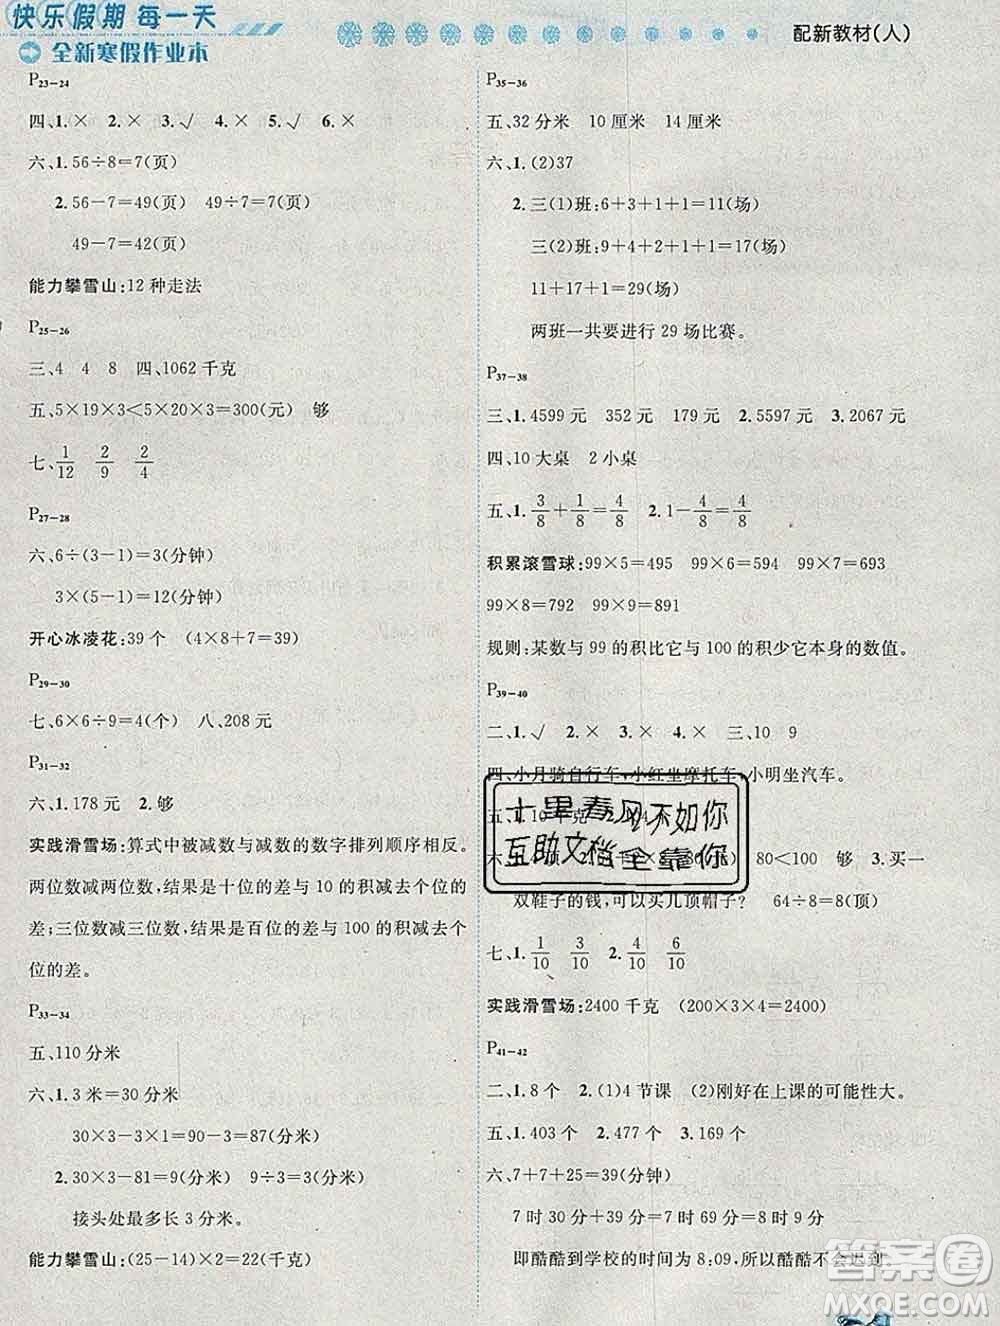 快乐假期 每一天
全新寒假作业本
配新教材(人)
P23-24
四、1.× 2.× 3.√ 4.× 5.√ 6.×
六、1.56÷8=7(页)
2.56-7=49(页) 49÷7=7(页)
49-7=42(页)
能力攀雪山:12种走法
P25-26
三、4 4 8 四、1062千克
五、5×19×3<5×20×3=300(元) 够
七、1/12 2/9 2/4
P27-28
六、6÷(3-1)=3(分钟)
3×(5-1)=12(分钟)
开心冰凌花:39个 (4×8+7=39)
P29-30
七、6×6÷9=4(个) 八、208元
P31-32
六、1.178元 2.够
实践滑雪场:算式中被减数与减数的数字排列顺序相反。
两位数减两位数,结果是十位的差与10的积减去个位的
差;三位数减三位数,结果是百位的差与100的积减去个
位的差。
P33-34
五、110分米
六、1.3米=30分米
30×3-3×1=90-3=87(分米)
2.30×3-81=9(分米) 9÷3=3(分米)
接头处最多长3分米。
能力攀雪山:(25-14)×2=22(千克)
P35-36
五、32分米 10厘米 14厘米
六、1.(2)37
2.三(1)班:6+3+1+1=11(场)
三(2)班:9+4+2+1+1=17(场)
11+17+1=29(场)
两班一共要进行29场比赛。
P37-38
三、1.4599元 352元 179元 2.5597元 3.2067元
四、10大桌 2小桌
五、1.3/8+1/8=4/8 2.1-4/8=4/8
积累滚雪球:99×5=495 99×6=594 99×7=693
99×8=792 99×9=891
规则:某数与99的积比它与100的积少它本身的数值。
P39-40
二、1.√ 2.× 3.× 4.× 三、10 9
四、小月骑自行车,小红坐摩托车,小明坐汽车。
五、1.10千克
80<100 够 3.买一
双鞋子的钱,可以买几顶帽子? 64÷8=8(顶)
七、1.1/10 3/10 2.4/10 6/10
实践滑雪场:2400千克 (200×3×4=2400)
P41-42
二、1.8个 2.(1)4节课 (2)刚好在上课的可能性大。
五、1.403个 2.477个 3.169个
六、7+7+25=39(分钟)
7时30分+39分=8时09分
即酷酷到学校的时间为8:09,所以酷酷不会迟到。
十里春风不如你
互助文档全靠你
答案圈